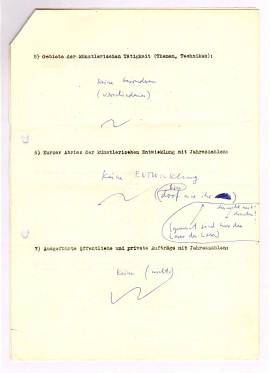 5) Gebiete der künstlerischen Tätigkeit (Themen, Techniken):
keine besonderen
(verschiedenes)
6) Kurzer Abriss der künstlerischen Entwicklung mit Jahreszahlen:
keine ENTWICKlung
doof wie ihr
(gemeint sind nur die
Leser des
7) Ausgeführte öffentliche und private Aufträge mit Jahreszahlen:
keine (nichts)